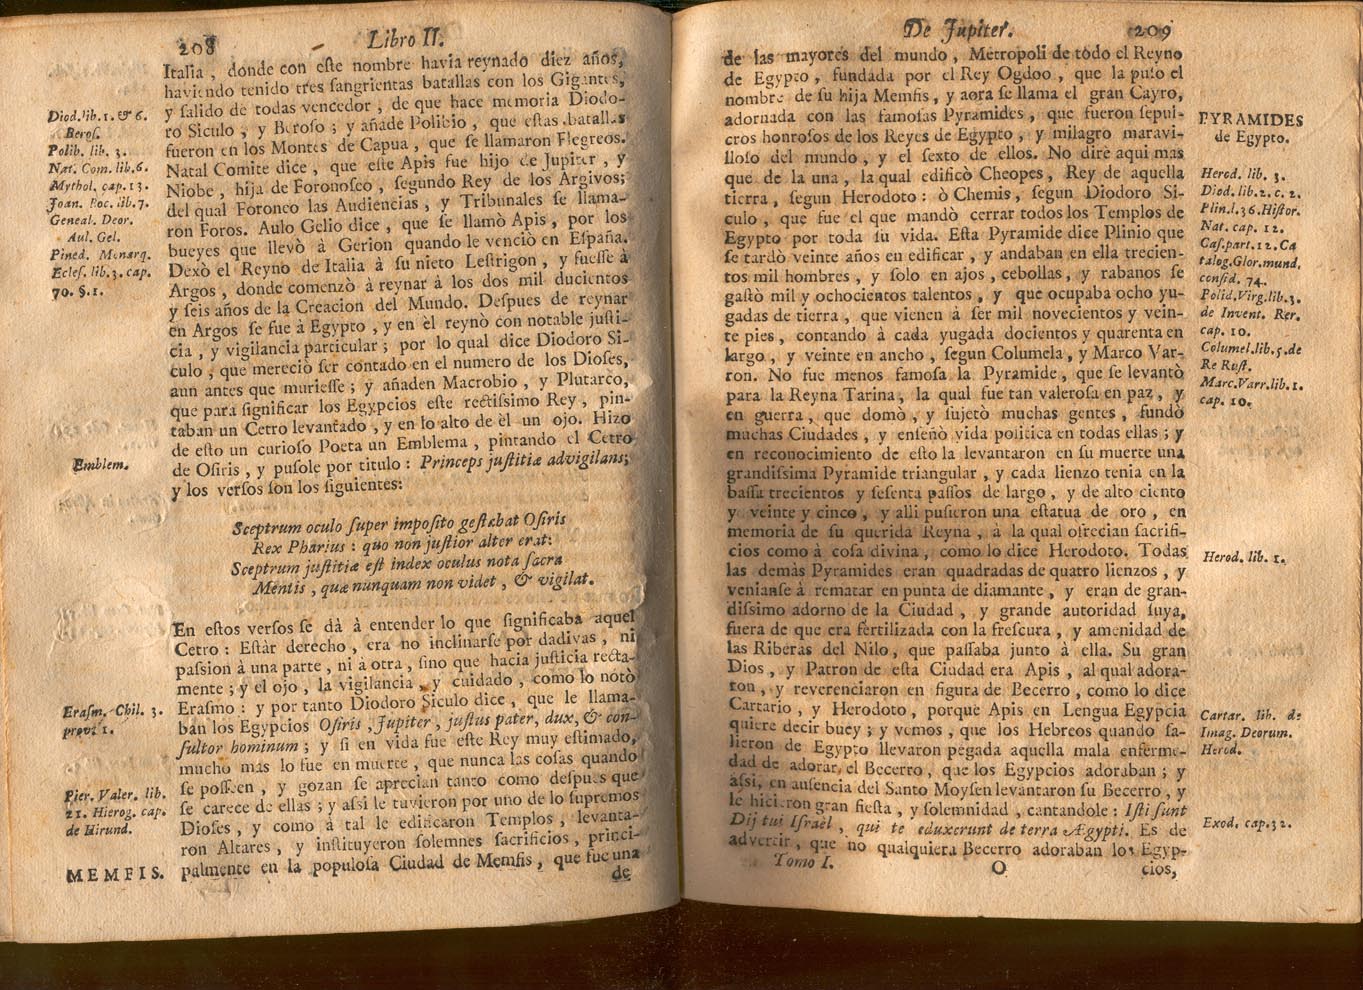 208
Libro II.
Italia , donde con eſte nombre havia reynado diez años,
haviendo tenido tres ſangrientas batallas con los Gigantes,
y ſalido de todas vencedor , de que hace memoria Diodo-
ro Siculo , y Beroſo ; y añade Polibio , que eſtas batallas
fueron en los Montes de Capua , que ſe llamaron Flegreos.
Natal Comite dice , que eſte Apis fue hijo de Jupiter , y
Niobe , hija de Foronoſeo , ſegundo Rey de los Argivos;
del qual Foroneo las Audiencias , y Tribunales ſe llama-
ron Foros. Aulo Gelio dice , que ſe llamò Apis , por los
bueyes que llevò à Gerion quando le venciò en Eſpaña.
Dexò el Reyno de Italia à ſu nieto Leſtrigon , y fueſſe à
Argos , donde comenzò à reynar à los dos mil ducientos
y ſeis años de la Creacion del Mundo. Deſpues de reynar
en Argos ſe fue à Egypto , y en èl reynò con notable juſti-
cia , y vigilancia particular ; por lo qual dice Diodoro Si-
culo , que mereciò ſer contado en el numero de los Dioſes,
aun antes que murieſſe ; y añaden Macrobio , y Plutarco,
que para ſignificar los Egypcios eſte rectiſsimo Rey , pin-
taban un Cetro levantado , y en lo alto de èl un ojo. Hizo
de eſto un curioſo Poeta un Emblema , pintando el Cetro
de Oſiris , y puſole por titulo : Princeps juſtitiæ advigilans;
y los verſos ſon los ſiguientes:
Sceptrum oculo ſuper impoſito geſtabat Oſiris
Rex Pharius : quo non juſtior alter erat:
Sceptrum juſtitiæ eſt index oculus nota ſacra
Mentis , quæ nunquam non videt , & vigilat.
En eſtos verſos ſe dà à entender lo que ſignificaba aquel
Cetro : Eſtàr derecho , era no inclinarſe por dadivas , ni
paſsion à una parte , ni à otra , ſino que hacia juſticia recta-
mente ; y el ojo , la vigilancia , y cuidado , como lo notò
Eraſmo : y por tanto Diodoro Siculo dice , que le llama-
ban los Egypcios Oſiris , Jupiter , juſtus pater, dux, & con-
ſultor hominum ; y ſi en vida fue eſte Rey muy eſtimado,
mucho mas lo fue en muerte , que nunca las coſas quando
ſe poſſeen , y gozan ſe aprecian tanto como deſpues que
ſe carece de ellas ; y aſsi le tuvieron por uno de lo ſupremos
Dioſes , y como à tal le edificaron Templos , levanta-
ron Altares , y inſtituyeron ſolemnes ſacrificios , princi-
palmente en la populoſa Ciudad de Memfis , que fue una
de
Diod. lib. 1. & 6.
Beroſ.
Polib. lib. 3.
Nat. Com. lib. 6.
Mythol. cap. 13.
Joan. Boc. lib. 7.
Geneal. Deor.
Aul. Gel.
Pined. Monarq.
Ecleſ. lib. 3. cap.
70. §. 1.
Emblem.
Eraſm. Chil. 3.
prov. 1.
Pier. Valer. lib.
21. Hierog. cap.
de Hirund.
MEMFIS.
De Jupiter.
209
de las mayores del mundo , Metropoli de todo el Reyno
de Egypto , fundada por el Rey Ogdoo , que la puſo el
nombre de ſu hija Memfis , y aora ſe llama el gran Cayro,
adornada con las famoſas Pyramides , que fueron ſepul-
cros honroſos de los Reyes de Egypto , y milagro maravi-
lloſo del mundo , y el ſexto de ellos. No dirè aqui mas
que de la una , la qual edificò Cheopes , Rey de aquella
tierra , ſegun Herodoto : ò Chemis , ſegun Diodoro Si-
culo , que fue el que mandò cerrar todos los Templos de
Egypto por toda ſu vida. Eſta Pyramide dice Plinio que
ſe tardò veinte años en edificar , y andaban en ella trecien-
tos mil hombres , y ſolo en ajos , cebollas , y rabanos ſe
gaſtò mil y ochocientos talentos , y que ocupaba ocho yu-
gadas de tierra , que vienen à ſer mil novecientos y vein-
te pies , contando à cada yugada docientos y quarenta en
largo , y veinte en ancho , ſegun Columela , y Marco Var-
ron. No fue menos famoſa la Pyramide , que ſe levantò
para la Reyna Tarina , la qual fue tan valeroſa en paz , y
en guerra , que domò , y ſujetò muchas gentes , fundò
muchas Ciudades , y enſeñò vida politica en todas ellas ; y
en reconocimiento de eſto la levantaron en ſu muerte una
grandiſsima Pyramide triangular , y cada lienzo tenia en la
baſſa trecientos y ſeſenta paſſos de largo , y de alto ciento
y veinte y cinco , y alli puſieron una eſtatua de oro , en
memoria de ſu querida Reyna , à la qual ofrecian ſacrifi-
cios como à coſa divina , como lo dice Herodoto. Todas
las demàs Pyramides eran quadradas de quatro lienzos , y
venianſe à rematar en punta de diamante , y eran de gran-
diſsimo adorno de la Ciudad , y grande autoridad ſuya,
fuera de que era fertilizada con la freſcura , y amenidad de
las Riberas del Nilo , que paſſaba junto à ella. Su gran
Dios , y Patron de eſta Ciudad era Apis , al qual adora-
ron , y reverenciaron en figura de Becerro , como lo dice
Cartario , y Herodoto , porque Apis en Lengua Egypcia
quiere decir buey ; y vemos , que los Hebreos quando ſa-
lieron de Egypto llevaron pegada aquella mala enferme-
dad de adorar el Becerro , que los Egypcios adoraban ; y
aſsi, en auſencia del Santo Moyſen levantaron ſu Becerro , y
le hicieron gran fieſta , y ſolemnidad , cantandole : Iſti ſunt
Dij tui Iſraèl , qui te eduxerunt de terra Ægypti. Es de
advertir , que no qualquiera Becerro adoraban los Egyp-
Tomo I.
O
cios,
PYRAMIDES
de Egypto.
Herod. lib. 3.
Diod. lib. 2. c. 2.
Plin. l. 36. Hiſtor.
Nat. cap. 12.
Caſ. part. 12. Ca
talog. Glor. mund.
conſid. 74.
Polid. Virg. lib. 3.
de Invent. Rer.
cap. 10.
Columel. lib. 5. de
Re Ruſt.
Marc. Varr. lib. 1.
cap. 10.
Herod. lib. 1.
Cartar. lib. de
Imag. Deorum.
Herod.
Exod. cap. 32.